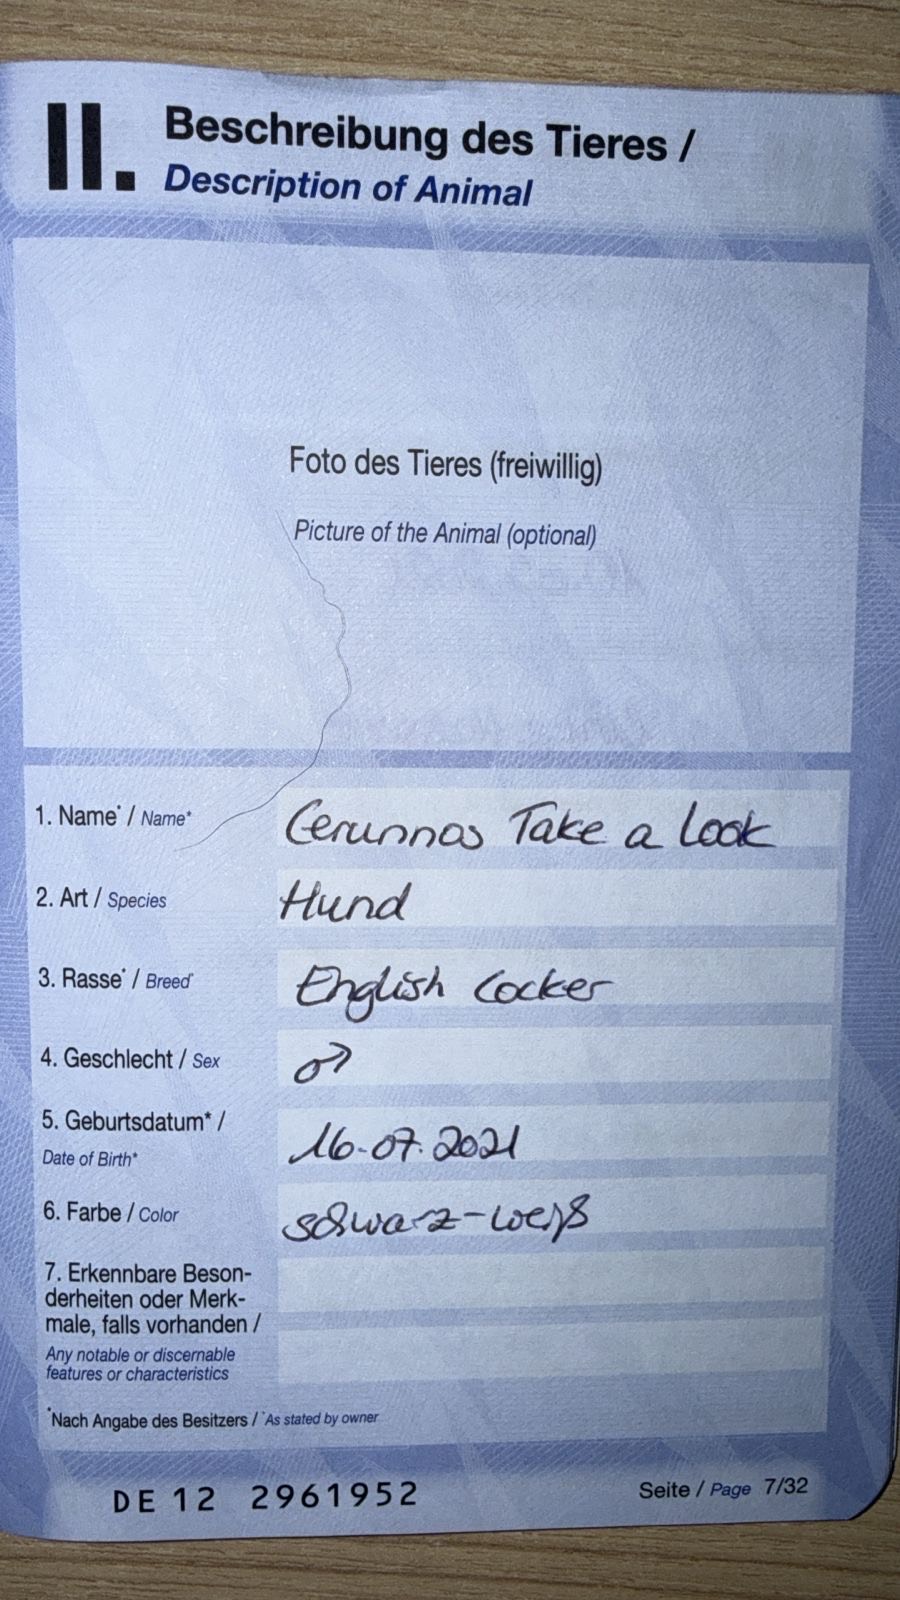 II. Beschreibung des Tieres /
Description of Animal
Foto des Tieres (freiwillig)
Picture of the Animal (optional)
1. Name* / Name* Cerunnos Take a Look
2. Art / Species Hund
3. Rasse* / Breed* English Cocker
4. Geschlecht / Sex ♂
5. Geburtsdatum* /
Date of Birth* 16.07.2021
6. Farbe / Color schwarz-weiß
7. Erkennbare Beson-
derheiten oder Merk-
male, falls vorhanden /
Any notable or discernable
features or characteristics
*Nach Angabe des Besitzers / *As stated by owner
DE 12 2961952 Seite / Page 7/32